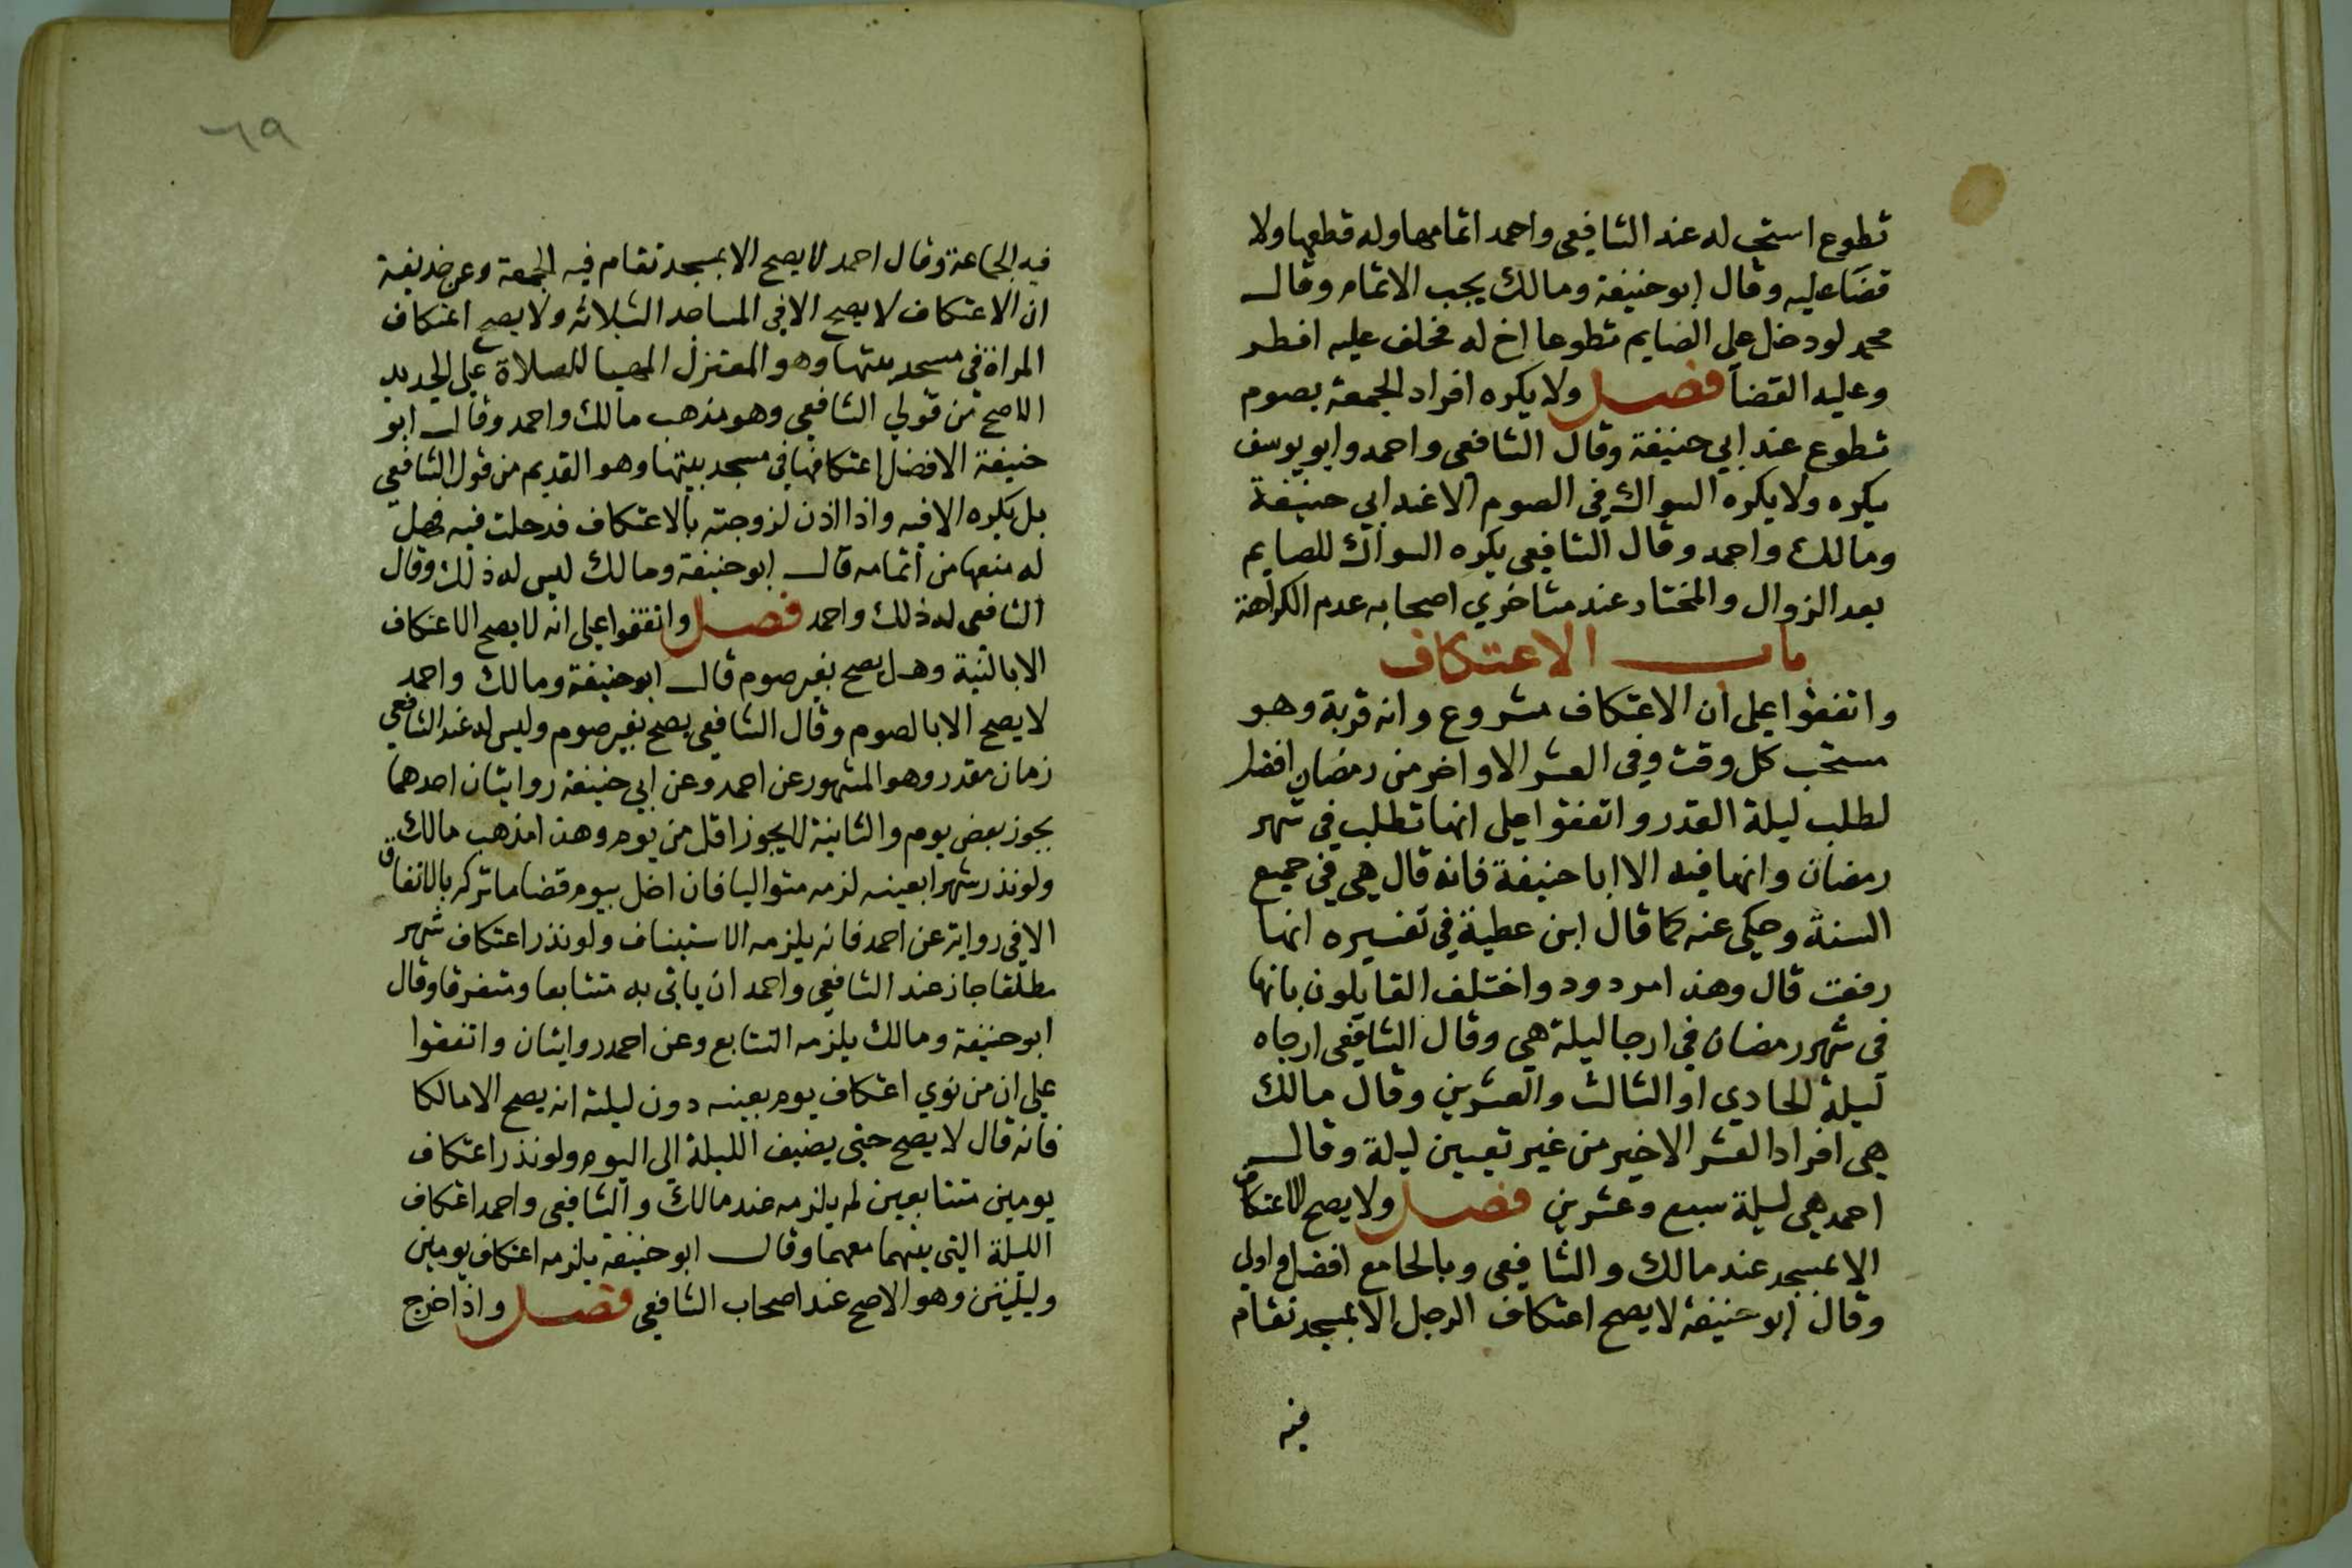 تطوع استحب له عند الشافعي واحمد اتمامها وله قطعها ولا
قضا عليه وقال ابو حنيفة ومالك يجب الاتمام وقال
محمد لو دخل على الصايم تطوعا اخ له فحلف عليه افطر
وعليه القضا فصل ولا يكره افراد الجمعة بصوم
تطوع عند ابي حنيفة وقال الشافعي واحمد وابو يوسف
يكره ولا يكره السواك في الصوم الا عند ابي حنيفة
ومالك واحمد وقال الشافعي يكره السواك للصايم
بعد الزوال والمختار عند متاخري اصحابه عدم الكراهة
باب الاعتكاف
واتفقوا على ان الاعتكاف مشروع وانه قربة وهو
مستحب كل وقت وفي العشر الاواخر من رمضان افضل
لطلب ليلة القدر واتفقوا على انها تطلب في شهر
رمضان وانها فيه الا ابا حنيفة فانه قال هي في جميع
السنة وحكى عنه كما قال ابن عطية في تفسيره انها
رفعت قال وهذا مردود واختلف القايلون بانها
في شهر رمضان في ارجا ليلة هي وقال الشافعي ارجاه
ليلة الحادي او الثالث والعشرين وقال مالك
هي افراد العشر الاخير من غير تعيين ليلة وقال
احمد هي ليلة سبع وعشرين فصل ولا يصح الاعتكاف
الا بمسجد عند مالك والشافعي وبالجامع افضل واولى
وقال ابو حنيفة لا يصح اعتكاف الرجل الا بمسجد تقام
فيه
٦٩
فيه الجماعة وقال احمد لا يصح الا بمسجد تقام فيه الجمعة وعن حذيفة
ان الاعتكاف لا يصح الا في المساجد الثلاثه ولا يصح اعتكاف
المراة في مسجد بيتها وهو المعتزل المهيا للصلاة على الجديد
الاصح من قولي الشافعي وهو مذهب مالك واحمد وقال ابو
حنيفة الافضل اعتكافها في مسجد بيتها وهو القديم من قول الشافعي
بل يكره الا فيه واذا اذن لزوجته بالاعتكاف فدخلت فيه فهل
له منعها من اتمامه قال ابو حنيفة ومالك ليس له ذلك وقال
الشافعي له ذلك واحمد فصل واتفقوا على انه لا يصح الاعتكاف
الا بالنية وهل يصح بغير صوم قال ابو حنيفة ومالك واحمد
لا يصح الا بالصوم وقال الشافعي يصح بغير صوم وليس له عند الشافعي
زمان مقدر وهو المشهور عن احمد وعن ابي حنيفة روايتان احدهما
يجوز بعض يوم والثانية لا يجوز اقل من يوم وهذا مذهب مالك
ولو نذر شهرا بعينه لزمه متواليا فان اخل بيوم قضا ما تركه بالاتفاق
الا في رواية عن احمد فانه يلزمه الاستيناف ولو نذر اعتكاف شهر
مطلقا جاز عند الشافعي واحمد ان ياتي به متتابعا ومتفرقا وقال
ابو حنيفة ومالك يلزمه التتابع وعن احمد روايتان واتفقوا
على ان من نوي اعتكاف يوم بعينه دون ليلته انه يصح الا مالكا
فانه قال لا يصح حتى يضيف الليلة الى اليوم ولو نذر اعتكاف
يومين متتابعين لم يلزمه عند مالك والشافعي واحمد اعتكاف
الليلة التي بينهما معهما وقال ابو حنيفة يلزمه اعتكاف يومين
وليلتين وهو الاصح عند اصحاب الشافعي فصل واذا خرج